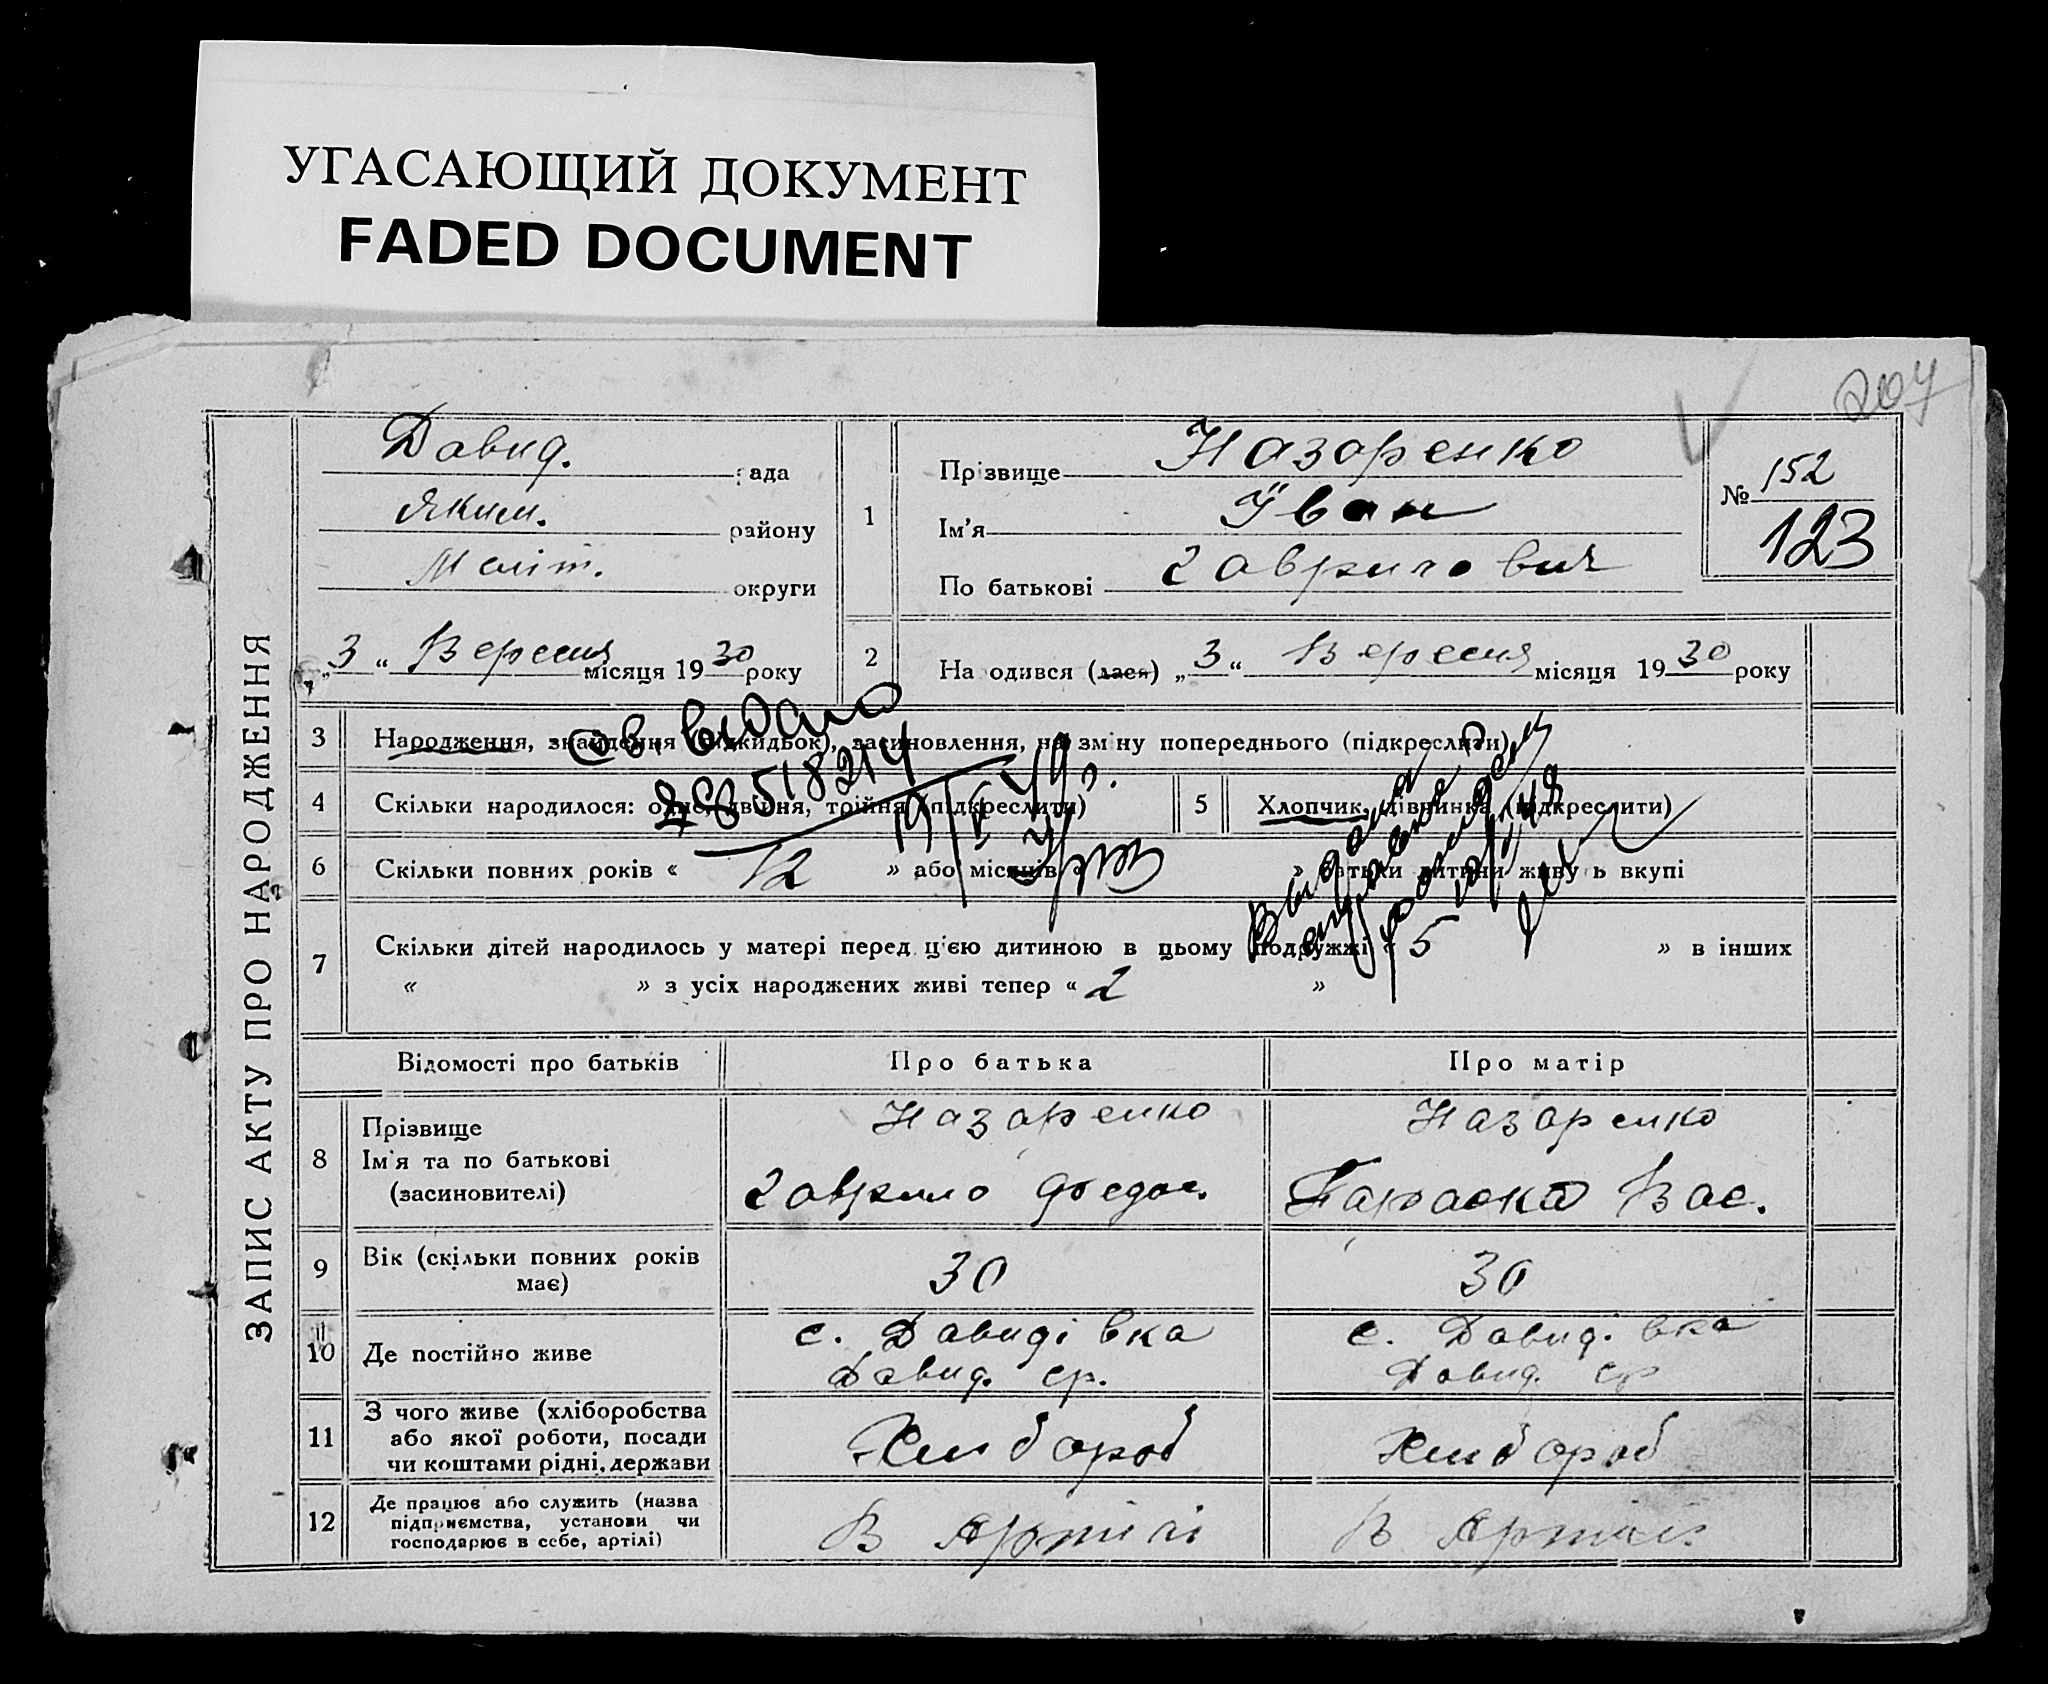 УГАСАЮЩИЙ ДОКУМЕНТ
FADED DOCUMENT
207
ЗАПИС АКТУ ПРО НАРОДЖЕННЯ
Давид. рада
Яким. району
Меліт. округи
„3“ Вересня місяця 1930 року
1
Прізвище Назаренко
Ім'я Іван
По батькові Гаврилович
№ 152
123
2 На одився (лася) „3“ Вересня місяця 1930 року
3 Народження, знайдення (підкидьок), засиновлення, на зміну попереднього (підкреслити)
св. видано
518214
4 Скільки народилося: одно, двійня, трійня (підкреслити)
5 Хлопчик, дівчинка (підкреслити)
6 Скільки повних років « 12 » або місяців « » батьки дитини живуть вкупі
7 Скільки дітей народилось у матері перед цією дитиною в цьому подружжі « 5 » в інших
« » з усіх народжених живі тепер « 2 »
Відомості про батьків Про батька Про матір
8 Прізвище
Ім'я та по батькові
(засиновителі)
Назаренко
Гаврило Федос.
Назаренко
Параска Вас.
9 Вік (скільки повних років
має)
30
30
10 Де постійно живе
с. Давидівка
Давид. ср.
с. Давидівка
Давид. ср
11 З чого живе (хліборобства
або якої роботи, посади
чи коштами рідні, держави
Хлібороб
Хлібороб
12 Де працює або служить (назва
підприємства, установи чи
господарює в себе, артілі)
В Артілі
В Артілі